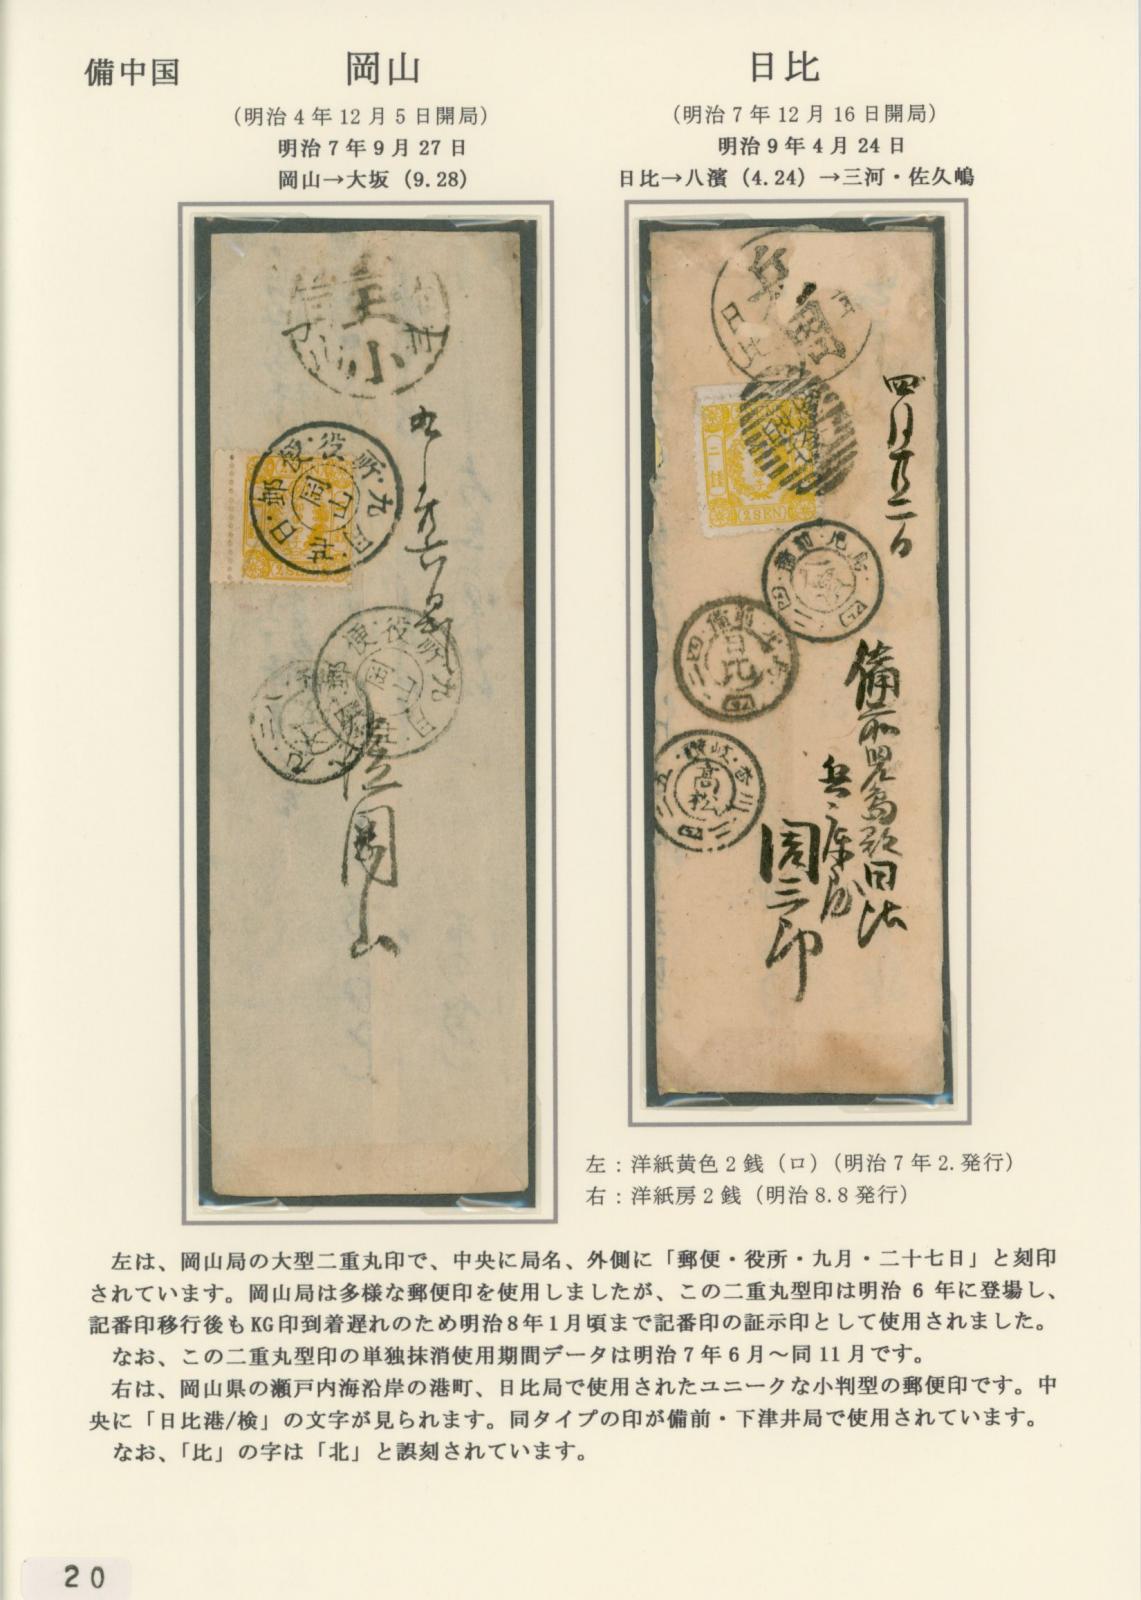 備中国
岡山
(明治4年12月5日開局)
明治7年9月27日
岡山→大坂(9.28)
日比
(明治7年12月16日開局)
明治9年4月24日
日比→八濱(4.24)→三河・佐久嶋
郵便・役所・九月・廿
岡山
小
2 SEN
日比
二銭
(2 SEN)
四月廿二日
備前
日比
讃岐・香川
高松
備前児島郡日比
兵庫屋
周三印
左:洋紙黄色2銭(ロ)(明治7年2.発行)
右:洋紙房2銭(明治8.8発行)
左は、岡山局の大型二重丸印で、中央に局名、外側に「郵便・役所・九月・二十七日」と刻印
されています。岡山局は多様な郵便印を使用しましたが、この二重丸型印は明治 6 年に登場し、
記番印移行後もKG印到着遅れのため明治8年1月頃まで記番印の証示印として使用されました。
なお、この二重丸型印の単独抹消使用期間データは明治7年6月～同11月です。
右は、岡山県の瀬戸内海沿岸の港町、日比局で使用されたユニークな小判型の郵便印です。中
央に「日比港/検」の文字が見られます。同タイプの印が備前・下津井局で使用されています。
なお、「比」の字は「北」と誤刻されています。
20